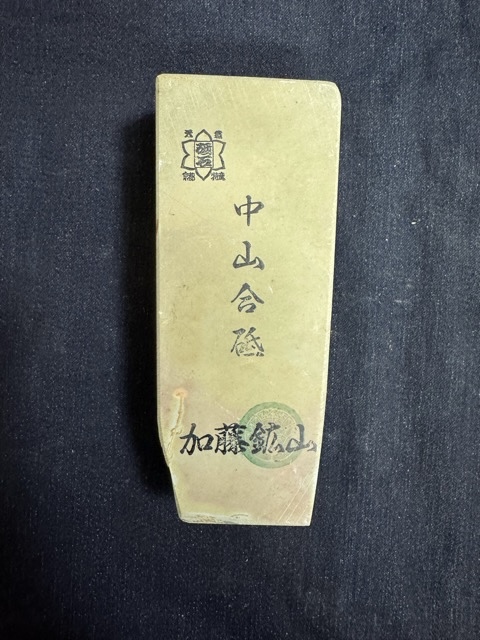 天然
砥石
中山合砥
加藤鉱山